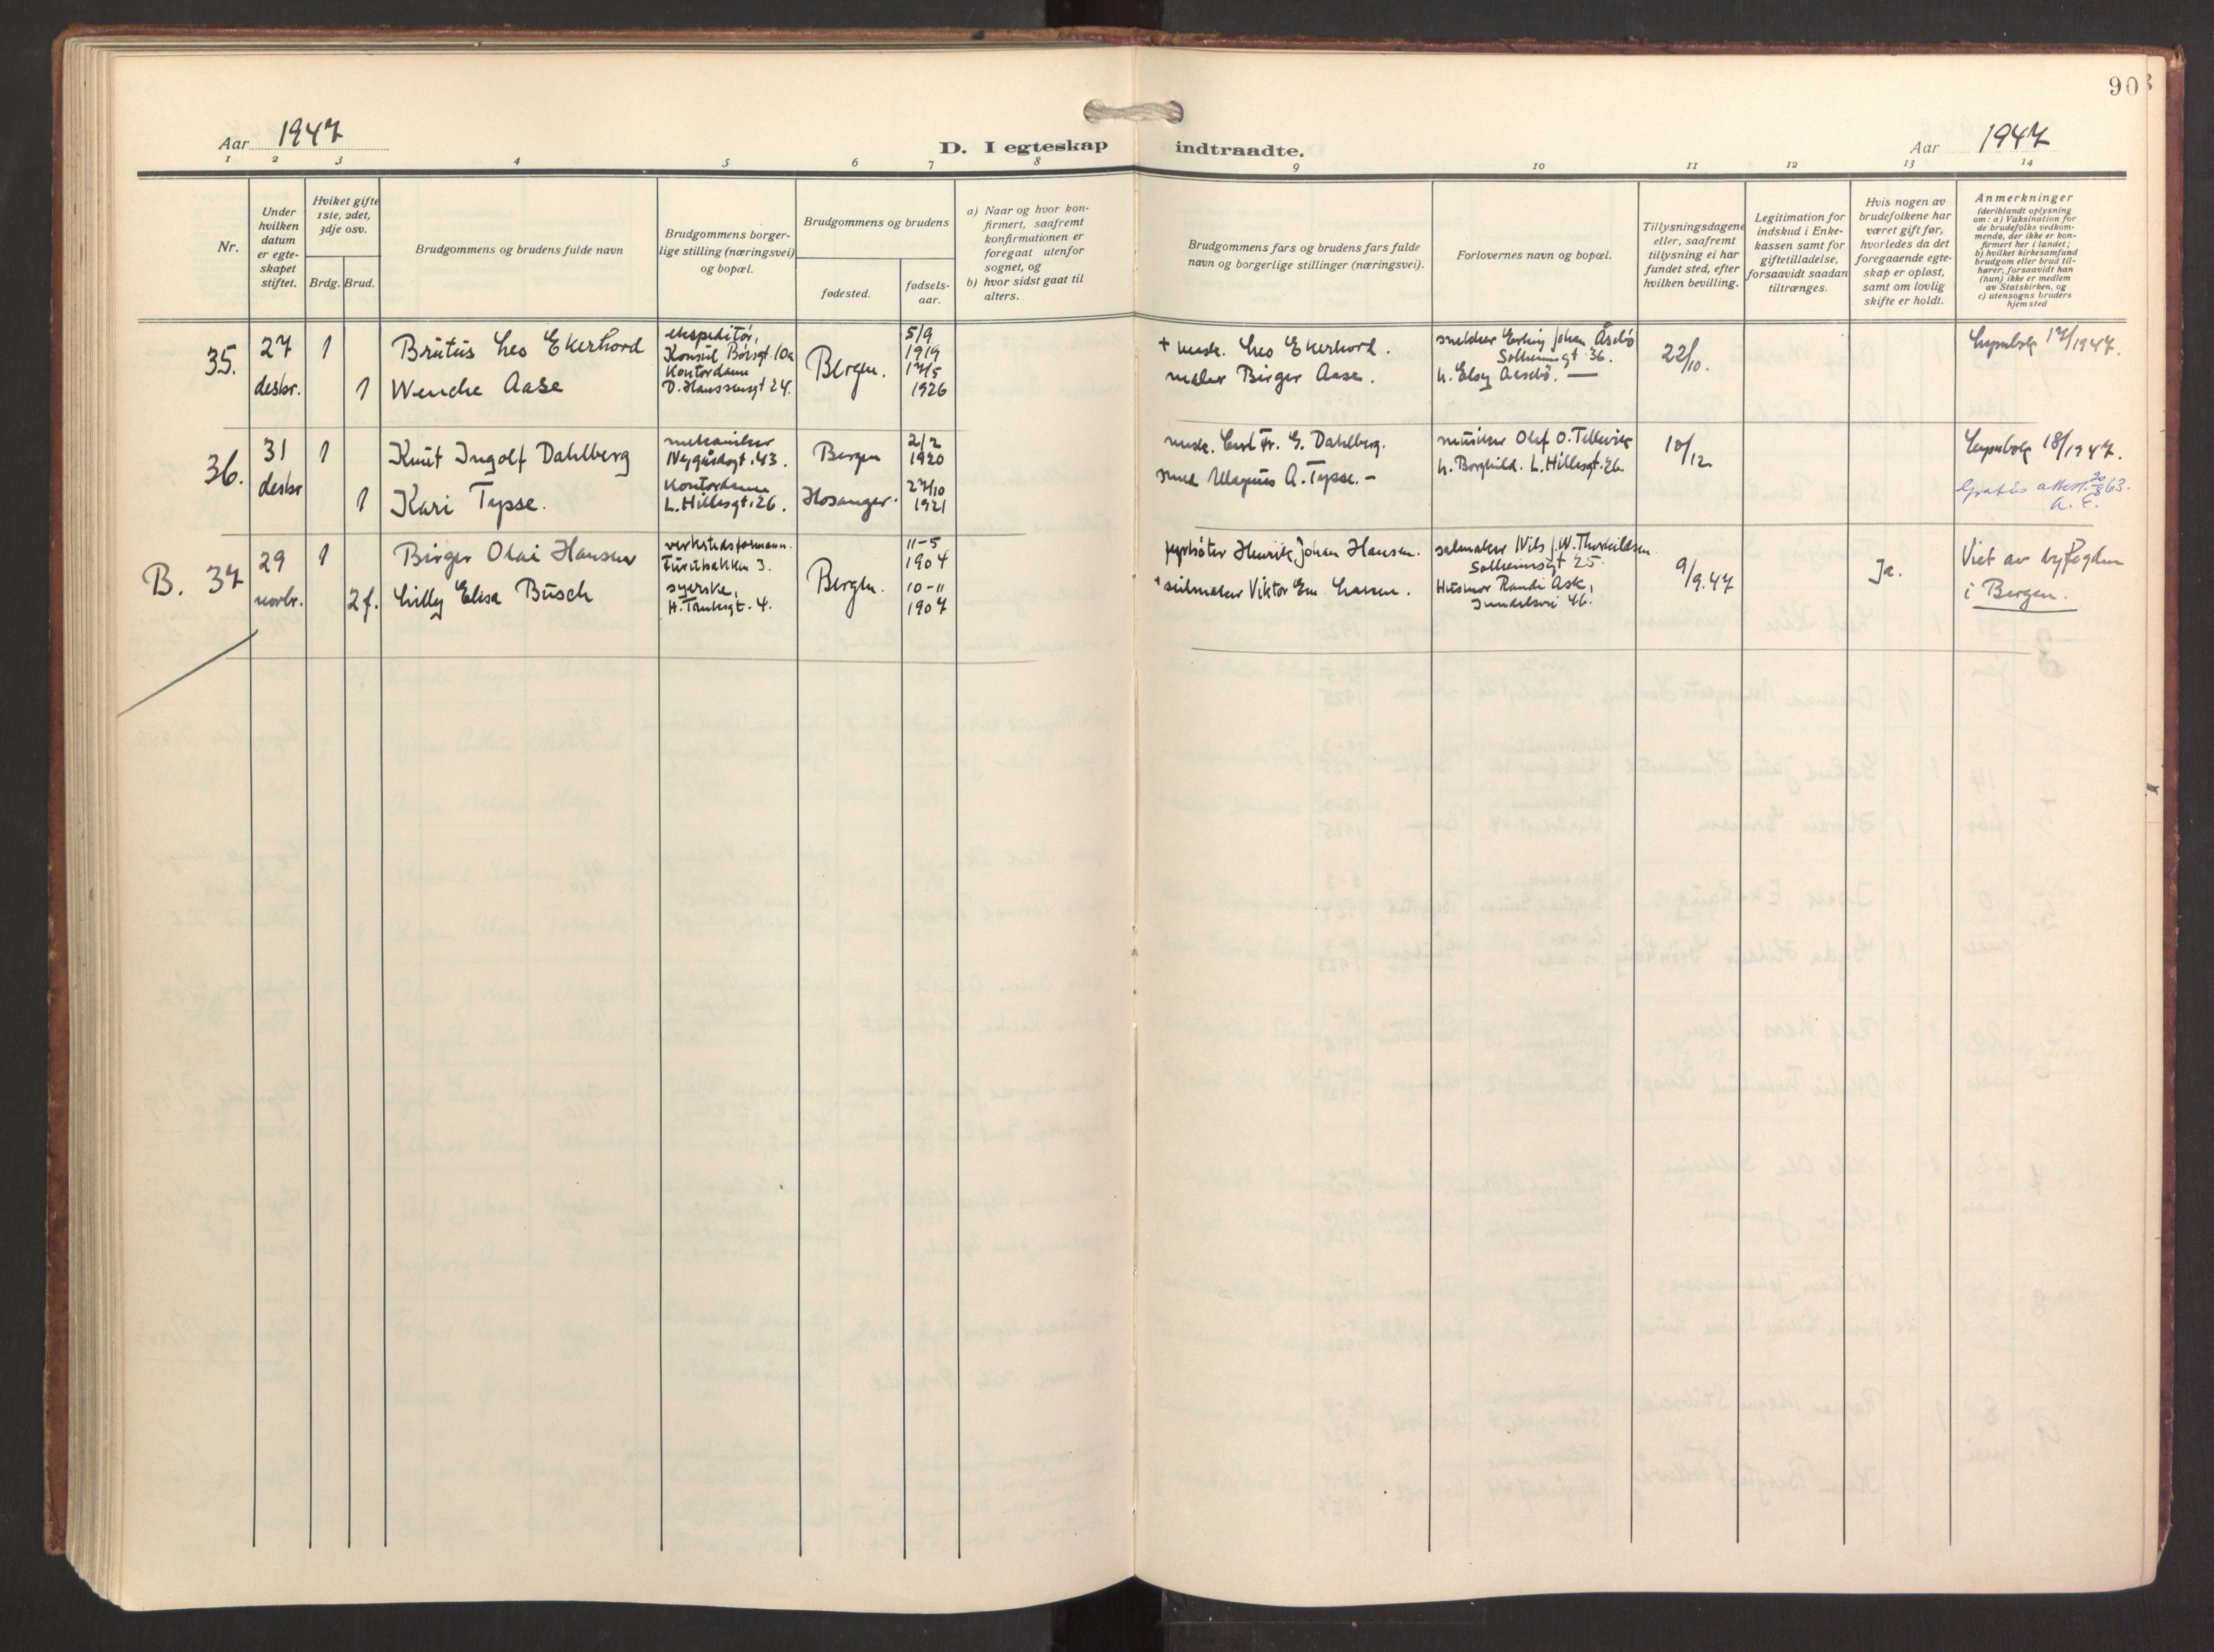 90
Aar 1947
D. I egteskap indtraadte.
Aar 1947
1 2 3 4 5 6 7 8 9 10 11 12 13 14
Nr.
Under hvilken datum er egte-skapet stiftet.
Hviket gifte 1ste, 2det, 3dje osv.
Brdg. Brud.
Brudgommens og brudens fulde navn
Brudgommens borger-
lige stilling (næringsvei)
og bopæl.
Brudgommens og brudens
fødested.
fødsels-
aar.
a) Naar og hvor kon-
firmert, saafremt
konfirmationen er
foregaat utenfor
sognet, og
b) hvor sidst gaat til
alters.
Brudgommens fars og brudens fars fulde
navn og borgerlige stillinger (næringsvei).
Forlovernes navn og bopæl.
Tillysningsdagene
eller, saafremt
tillysning ei har
fundet sted, efter
hvilken bevilling.
Legitimation for
indskud i Enke-
kassen samt for
giftetilladelse,
forsaavidt saadan
tiltrænges.
Hvis nogen av
brudefolkene har
været gift før,
hvorledes da det
foregaaende egte-
skap er opløst,
samt om lovlig
skifte er holdt.
Anmerkninger
(deriblandt oplysning
om: a) Vaksination for
de brudefolks vedkom-
mende, der ikke er kon-
firmert her i landet;
b) hvilket kirkesamfund
brudgom eller brud til-
hører, forsaavidt han
(hun) ikke er medlem
av Statskirken, og
c) utensogns bruders
hjemsted
35.
27
desbr.
1
1
Brutus Leo Ekerhovd
Wenche Aase
ekspeditør,
Konsul Børsgt. 10a
Kontordame
D. Hanssensgt 24.
Bergen.
5/9
1919
17/5
1926
+ mask. Leo Ekerhovd.
maler Birger Aase.
snekker Erling Johan Åsebø
Solheimsgt. 36.
h. Elsy Aasebø. —
22/10.
17/1947.
36.
31
desbr
1
1
Knut Ingolf Dahlberg
Kari Tepse.
mekaniker
Nygårdsgt. 43.
Kontordame
L. Hillesgt. 26.
Bergen
Hosanger.
2/2
1920
27/10
1921
mask. Fr. E. Dahlberg.
smed Magnus A. Tepse. -
musiker Olaf O. Tellevik
h. Borghild. L. Hillesgt. 26.
10/12
18/1947.
Gratis attest. 20/8 63.
B. 37
29
novbr.
1
2 f.
Birger Olai Hansen
Lilly Elisa Busch
verkstedsformann.
Furubakken 3.
syerske,
H. Tanksgt. 4.
Bergen.
11-5
1904
10-11
1907
fyrbøter Henrik Johan Hansen.
+ seilmaker Viktor Em. Larsen.
salmaker Nils J. W. Thorkildsen
Solheimsgt 25.
Husmor Randi Ask,
46.
9/9.47
Ja.
Viet av byfogden
i Bergen.